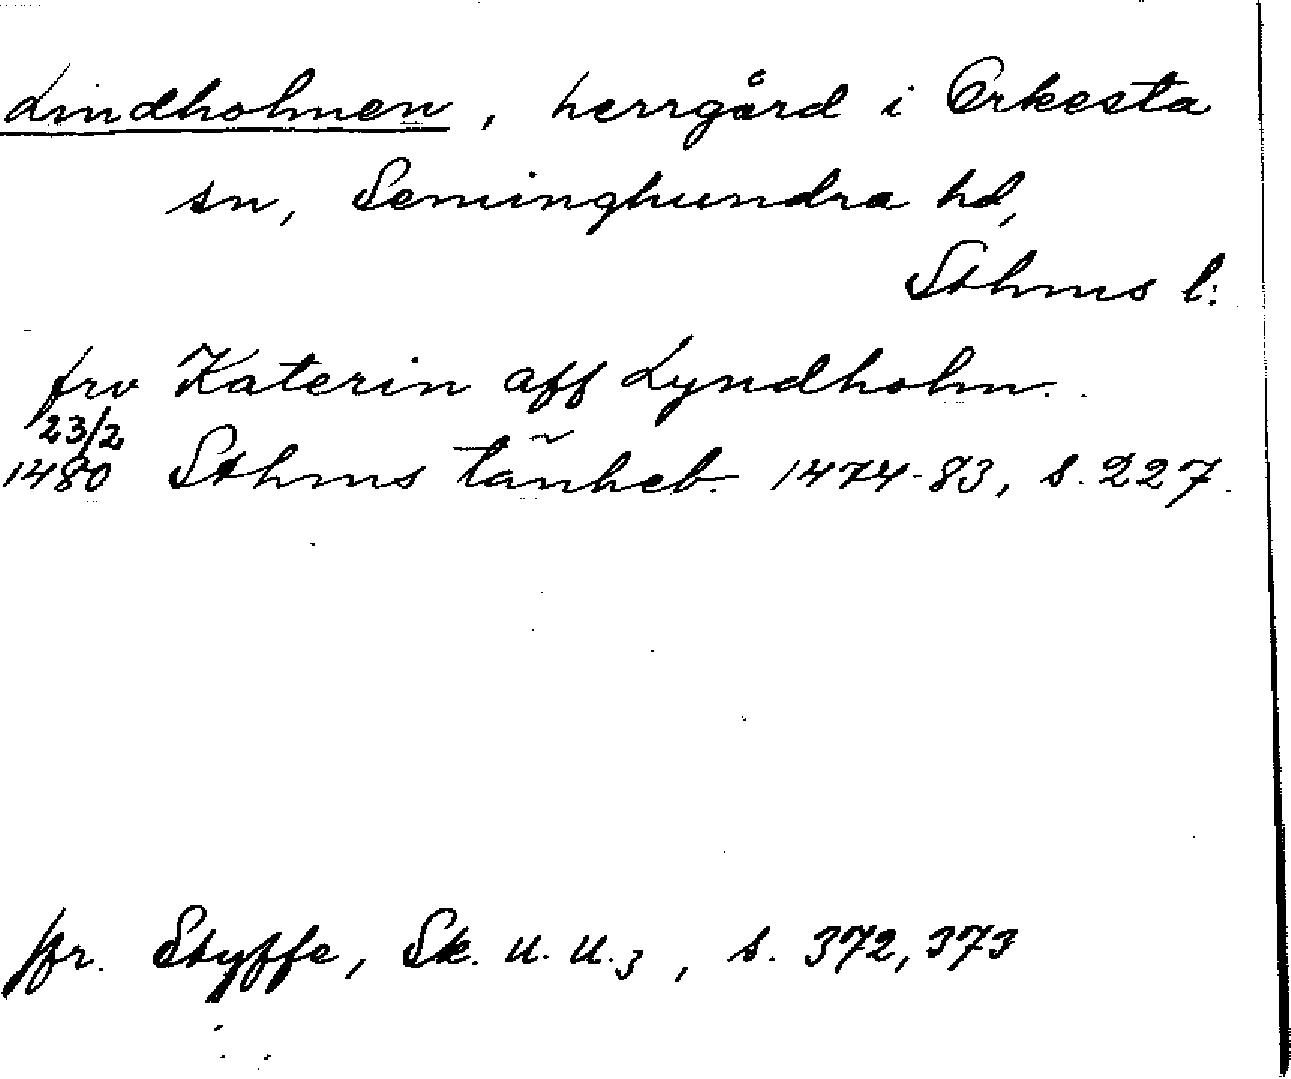 Lindholmen, herrgård i Orkesta
sn, Seminghundra hd,
Sthms l:
frv Katerin aff Lyndholm.
23/2
1480 Sthms tänkeb. 1474-83, s. 227.
jfr. Styffe, Sk. u. U.3, s. 372, 373